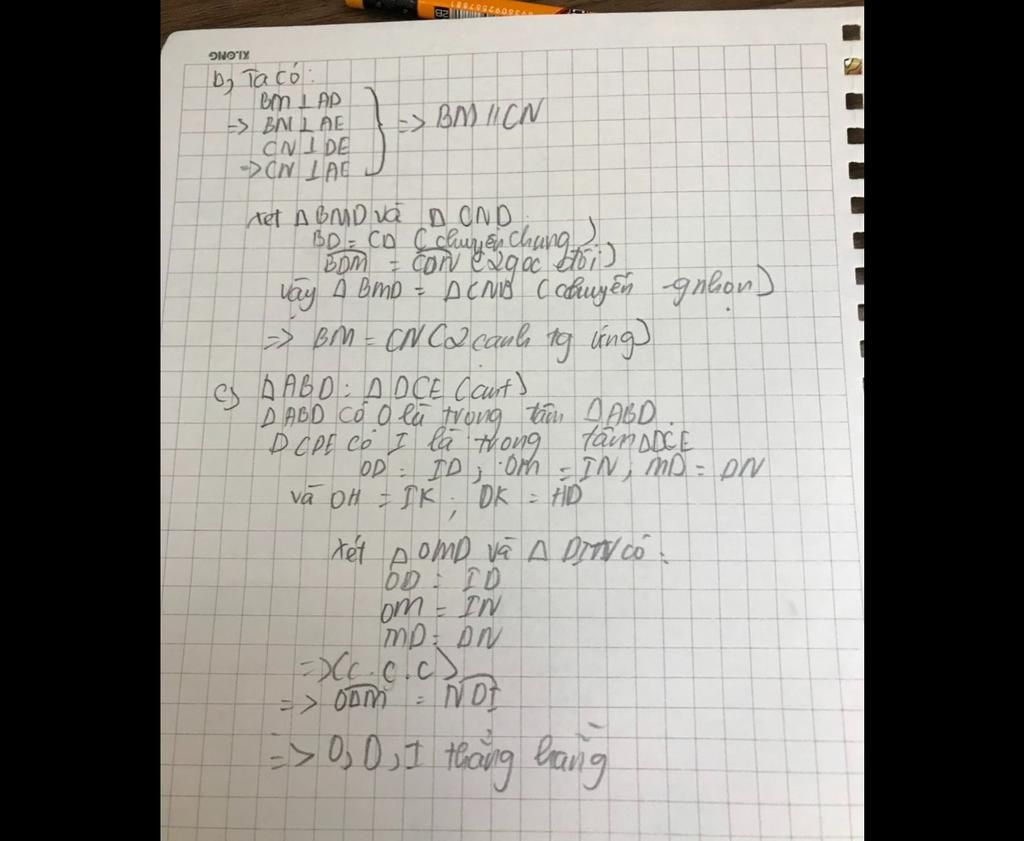 KLONG
b) Ta có:
BM ⊥ AD
=> BM ⊥ AE
CN ⊥ DE
=> CN ⊥ AE
=> BM // CN
Xét Δ BMD và Δ CND
BD = CD (chuyền chung)
BDM = CDN (2 góc đối)
Vậy Δ BMD = Δ CND (chuyền - gnhọn)
=> BM = CN (2 cạnh tg ứng)
c) Δ ABD = Δ DCE (cmt)
Δ ABD có O là trọng tâm Δ ABD.
Δ CDE có I là trong tâm Δ DCE
OD = ID; OM = IN; MD = DN
và OH = IK; DK = HD
Xét Δ OMD và Δ DIN có:
OD = ID
OM = IN
MD = DN
=> (c.c.c)
=> ODM = NDI
=> O, D, I thẳng hàng